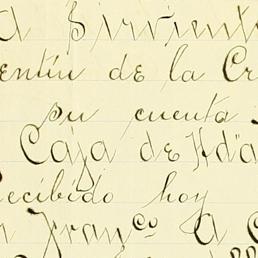 a Sirvient
entín de la Cr
su cuenta
Caja de Hdª
Recibido hoy
n Franco A C